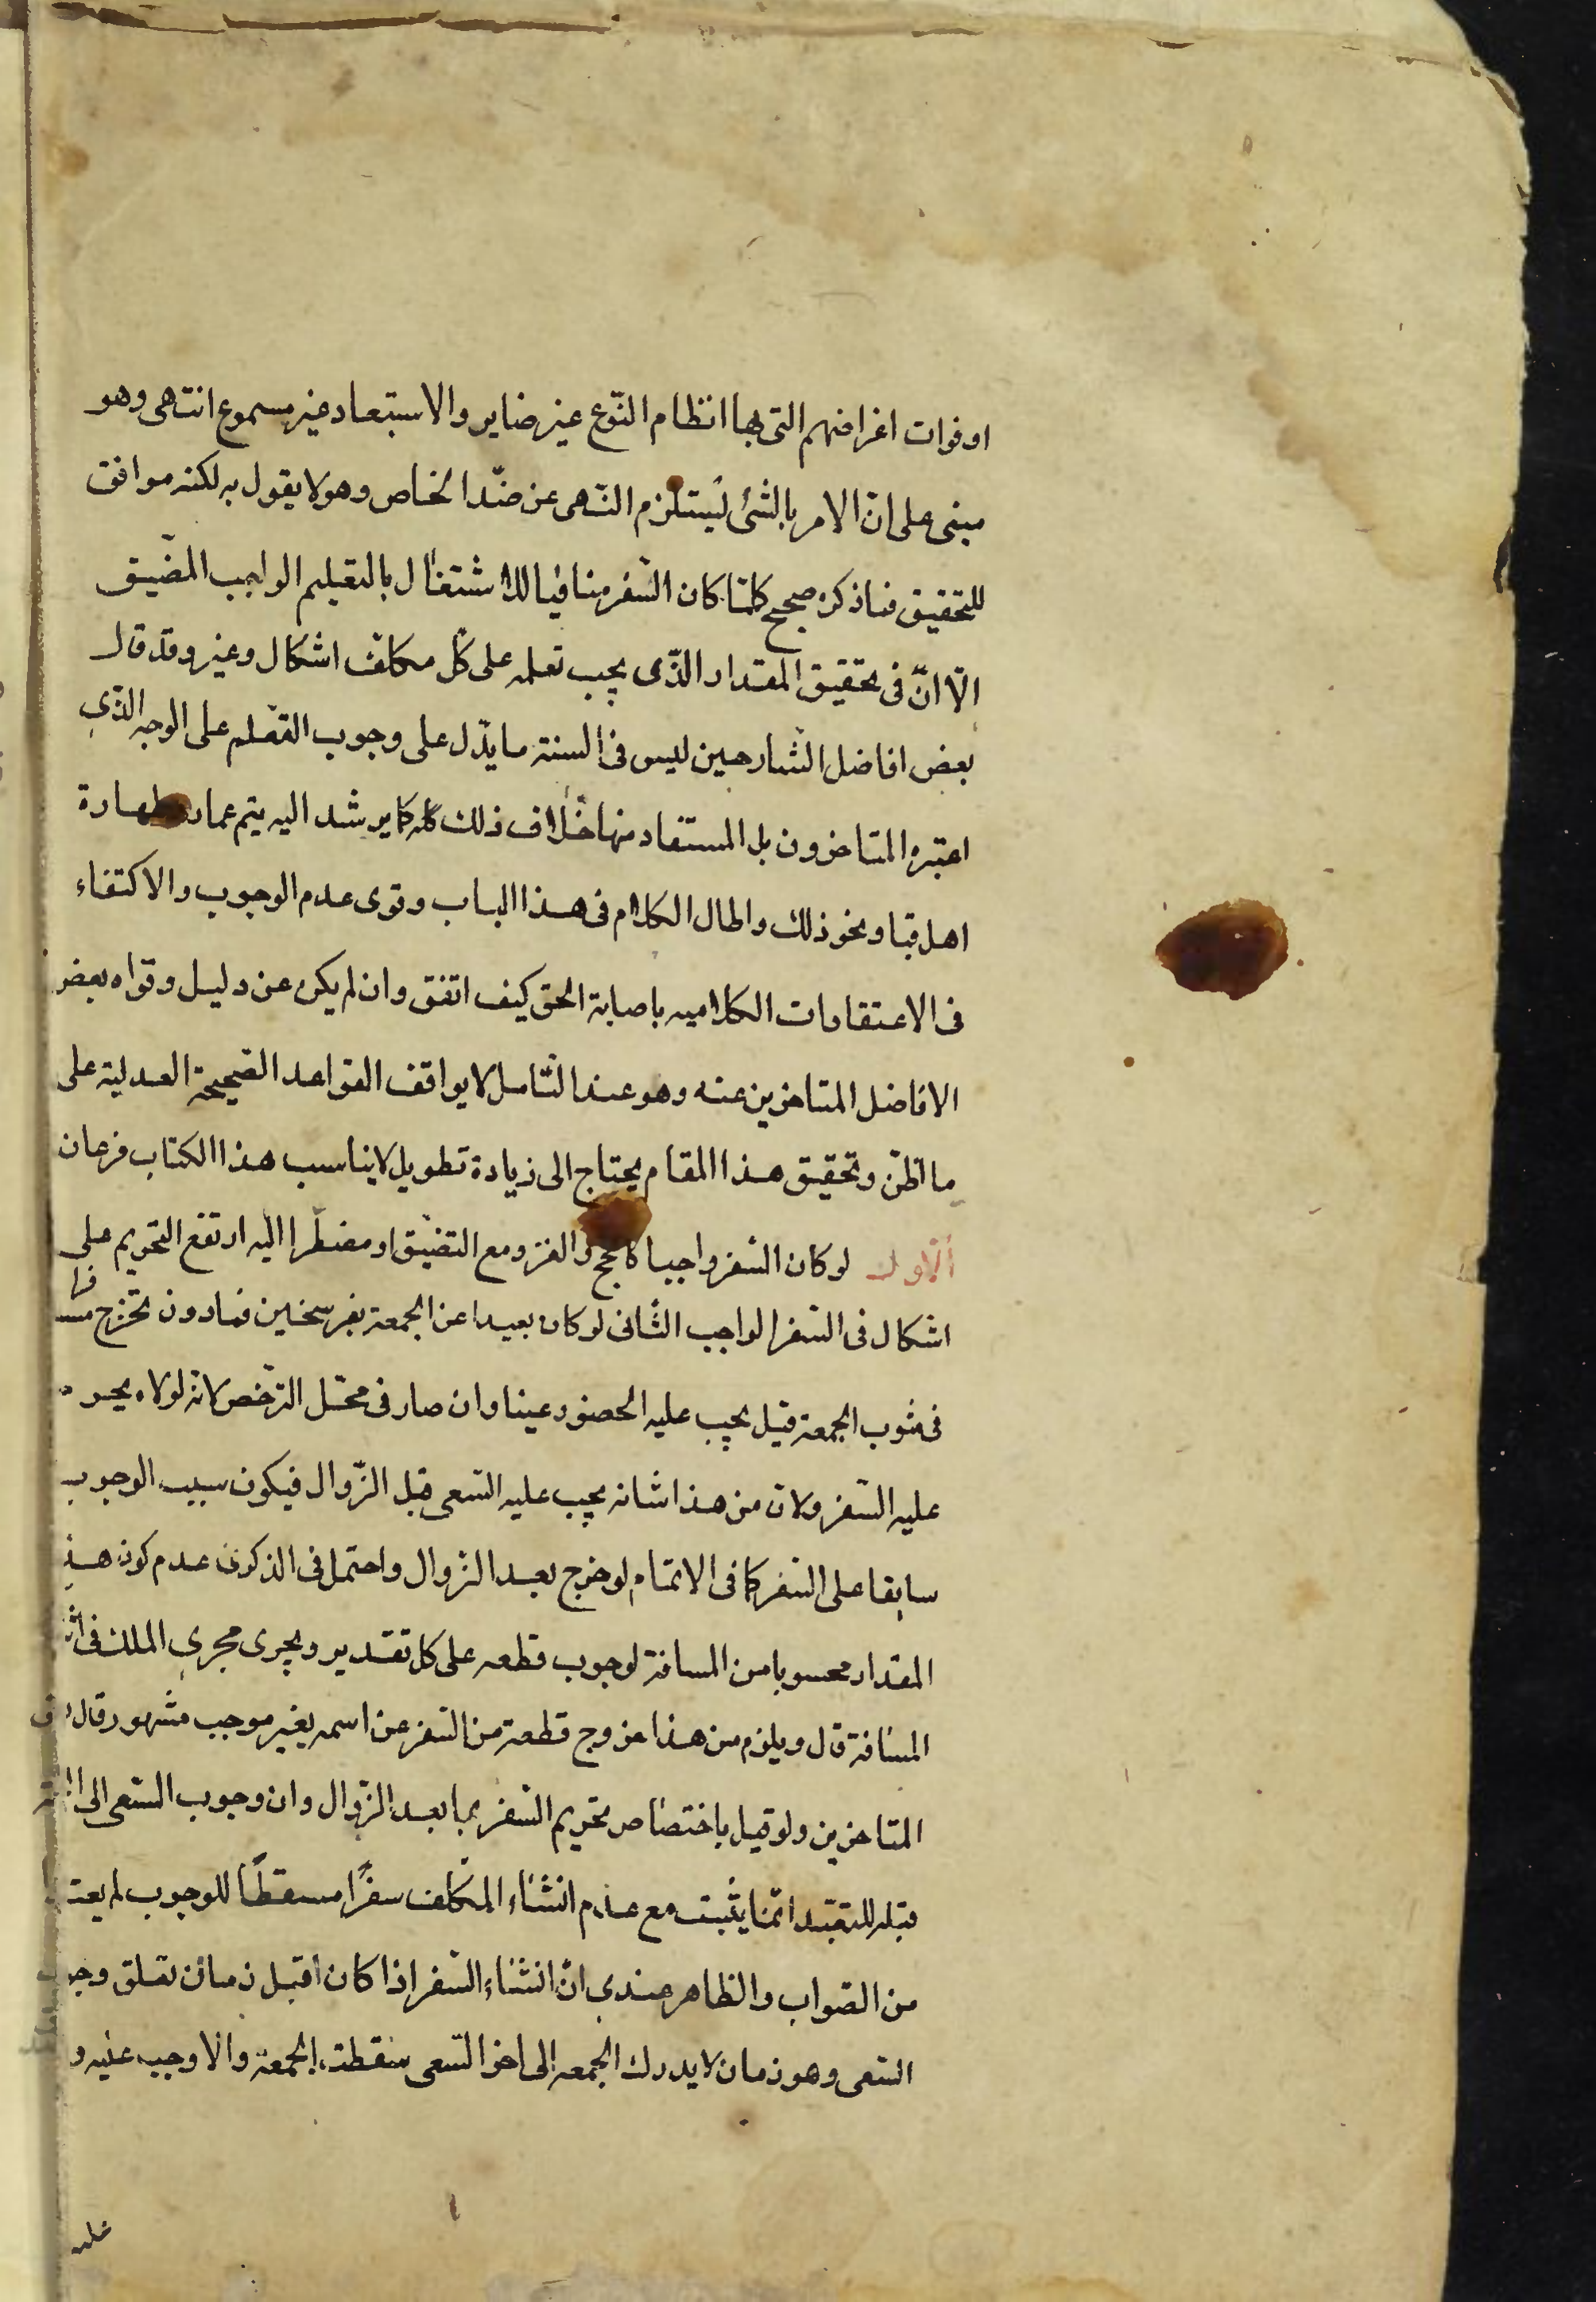 او فوات اغراضهم التی بها انتظام النّوع غیر ضایر والاستبعاد غیر مسموع انتهی وهو
مبنی علی انّ الامر بالشئ یستلزم النّهی عن ضدّ الخاص وهو لا یقول به لکنه موافق
للتحقیق فما ذکره صحیح کلما کان السّفر منافیا للاشتغال بالتعلیم الواجب المضیق
الّا انّ فی تحقیق المقدار الذّی یجب تعلمه علی کل مکلف اشکال وغیره وقد قال
بعض افاضل الشارحین لیس فی السنة ما یدّل علی وجوب التعلم علی الوجه الذّی
اعتبره المتاخرون بل المستفاد منها خلاف ذلک کله کما یرشد الیه تیمم عمار وطهارة
اهل قبا ونحو ذلک واطال الکلام فی هذا الباب وقوی عدم الوجوب والاکتفاء
فی الاعتقادات الکلامیه باصابة الحق کیف اتفق وان لم یکن عن دلیل وقواه بعض
الافاضل المتاخرین عنه وهو عند التّامل لا یوافق القواعد الصّحیحة العدلیة علی
ما اظنّ وتحقیق هذا المقام یحتاج الی زیادة تطویل لا یناسب هذا الکتاب فرعان
الاول لو کان السّفر واجبا کالحج والغزو مع التضیّق او مضطّرا الیه ارتفع التحریم علی
اشکال فی السّفر الواجب الثّانی لو کان بعیدا عن الجمعة بفرسخین فمادون فخرج مسافرا
فی صوب الجمعة قیل یجب علیه الحضور عینا وان صار فی محلّ الترّخص لانه لولاه یحرم
علیه السّفر ولانّ من هذا شانه یجب علیه السّعی قبل الزّوال فیکون سبب الوجوب
سابقا علی السّفر کما فی الاتمام لو خرج بعد الزوال واحتمل فی الذکری عدم کون هذا
المقدار محسوبا من المسافة لوجوب قطعه علی کل تقدیر ویجری مجری الملک فی اثناء
المسافة قال ویلزم من هذا خروج قطعة من السّفر عن اسمه بغیر موجب مشهور وقال بعض
المتاخرین ولو قیل باختصاص تحریم السّفر بما بعد الزوال وان وجوب السّعی الی الجمعة
قبله للتعبّد انّما یثبت مع عدم انشاء المکلف سفرًا مسقطًا للوجوب لم یعتد
من الصّواب والظاهر عندی انّ انشاء السّفر اذا کان قبل زمان تعلق وجوب
السّعی وهو زمان لا یدرک الجمعه الی اخر السّعی سقطت الجمعة والا وجب علیه و